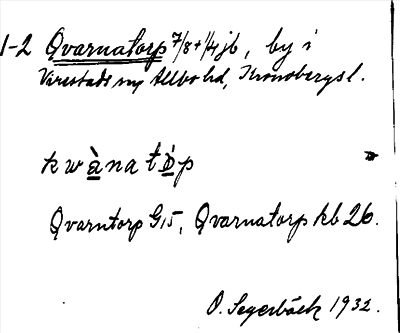 1-2 Qvarnatorp 7/8+1/4 jb, by i
Virestads sn, Allbo hd, Kronobergs l.
kwànatòp
Qvarntorp G15, Qvarnatorp kb 26.
O. Segerbäck 1932.